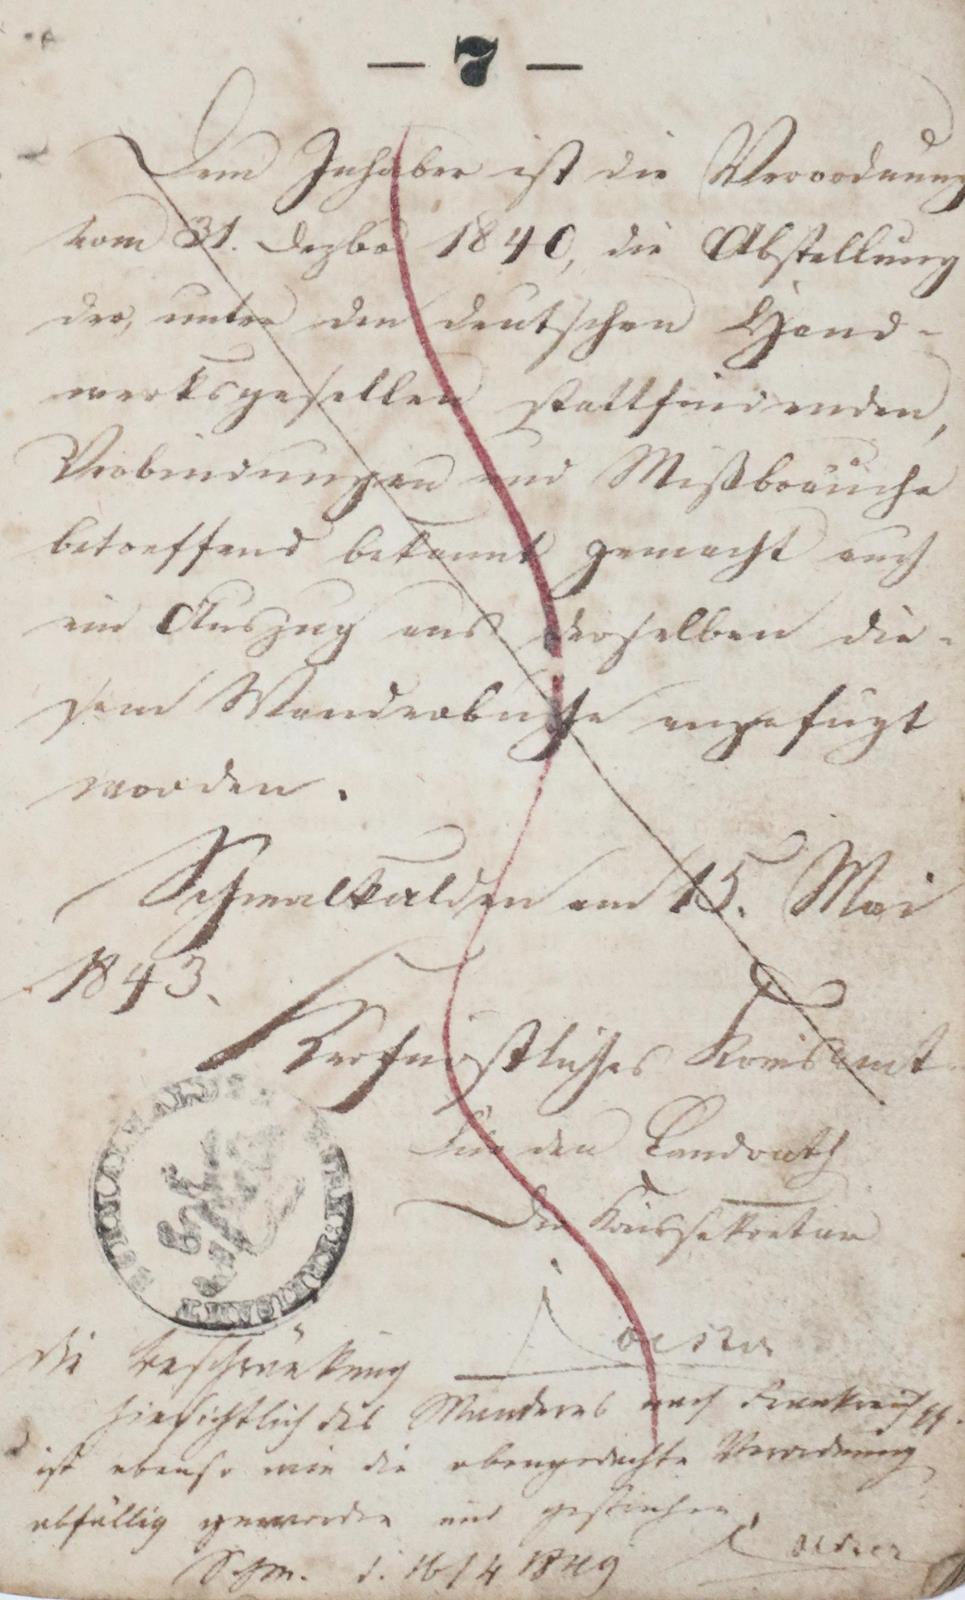 — 7 —
Dem Inhaber ist die Verordnung
vom 31. Dezbr 1840, die Abstellung
der, unter den deutschen Hand-
werksgesellen stattfindenden,
Verbindungen und Mißbräuche
betreffend bekannt gemacht auch
ein Auszug aus derselben die-
sem Wanderbuche angefügt
worden.
Schmalkalden am 15. Mai
1843.
Kurfürstliches Kreisamt
Für den Landrath
Der Kreissekretar
KREISAMT
Die Beschränkung
hinsichtlich des Wanderns nach Frankreich
ist ebenso wie die obengedachte Verordnung
abfällig geworden und gestrichen.
Schm. d. 16/4 1849